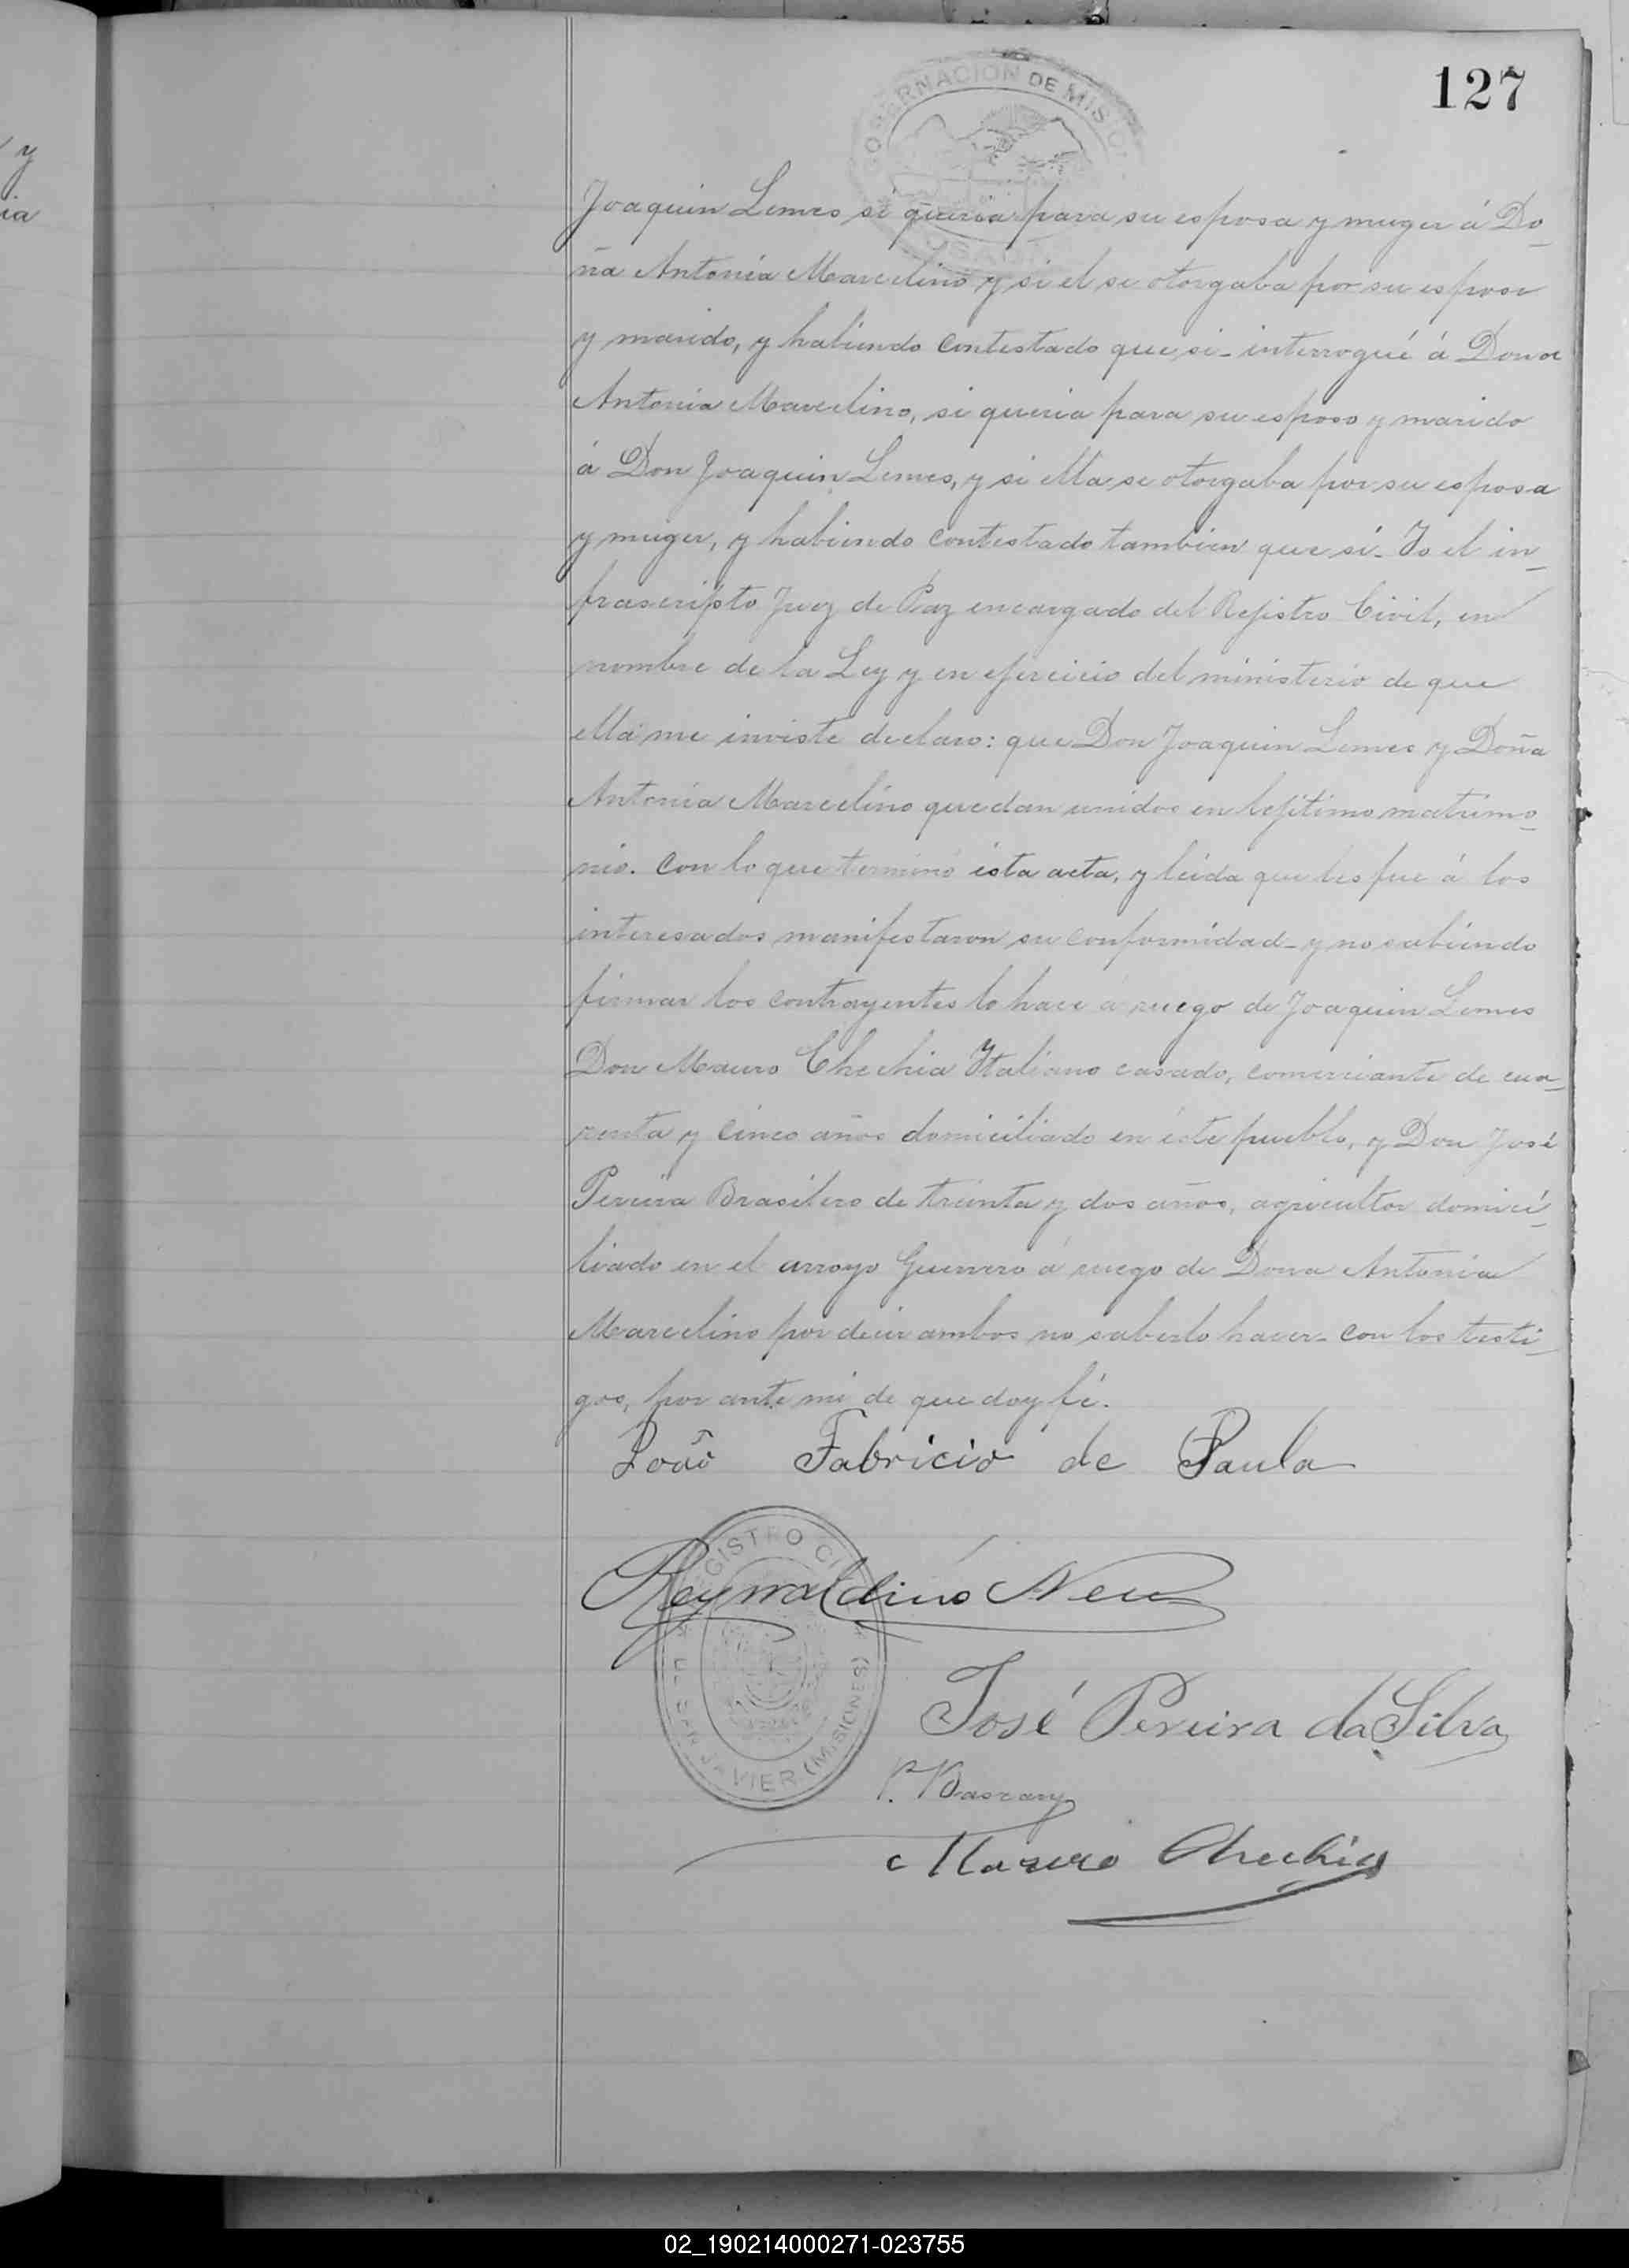 127
GOBERNACION DE MISIO
Joaquin Lemes si queria para su esposa y muger á Do_
ña Antonia Marcelino y si el se otorgaba por su esposo
y marido, y habiendo contestado que si_ interrogué á Dona
Antonia Marcelino, si queria para su esposo y marido
á Don Joaquin Lemes, y si ella se otorgaba por su esposa
y muger, y habiendo contestado tambien que si_ Yo el in_
frascripto Juez de Paz encargado del Rejistro Civil, en
nombre de la Ley y en ejercicio del ministerio de que
ella me inviste declaro: que Don Joaquin Lemes y Doña
Antonia Marcelino quedan unidos en lejitimo matrimo_
nio. Con lo que terminó ésta acta, y leida que les fue á los
interesados manifestaron su conformidad_ y no sabiendo
firmar los contrayentes lo hace á ruego de Joaquin Lemes
Don Mauro Chechia Italiano casado, comerciante de cua_
renta y cinco años domiciliado en éste pueblo, y Don José
Pereira Brasilero de treinta y dos años, agricultor domici_
liado en el arroyo Guerrero á ruego de Dona Antonia
Marcelino por decir ambos no saberlo hacer_ con los testi_
gos, por ante mi de que doy fé.
João Fabricio de Paula
Reynaldino Neu
REGISTRO CI
DE SAN JAVIER (MISIONES)
José Pereira da Silva
Mauro Chechia
02_190214000271-023755